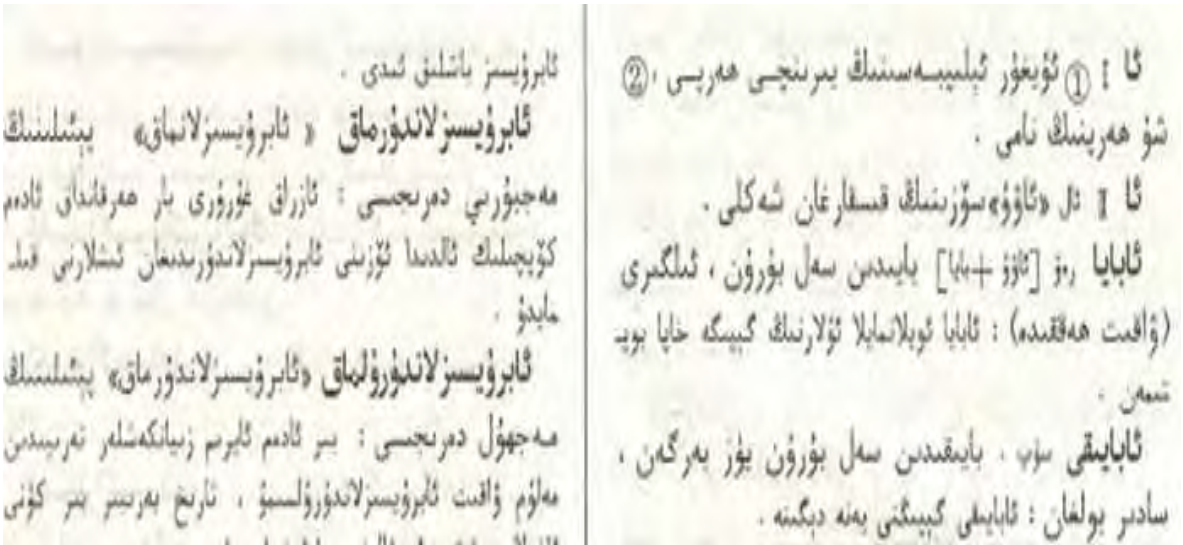 ئا I ① ئۇيغۇر ئېلىپبەسىنىڭ بىرىنچى ھەرپى ، ②
شۇ ھەرپنىڭ نامى .
ئا II ئال «ئاۋۇ» سۆزىنىڭ قىسقارغان شەكلى .
ئابايا رەۋ [ئاۋۇ + بايا] بايىدىن سەل بۇرۇن ، ئىلگىرى
(ۋاقىت ھەققىدە) : ئابايا ئويلانمايلا ئۇلارنىڭ گېپىگە خاپا بوپ-
تىمەن .
ئابايىقى سۈپ . بايىقىدىن سەل بۇرۇن يۈز بەرگەن ،
سادىر بولغان : ئابايىقى گېپىڭنى يەنە دېگىنە .
ئابرۇيسىز باشلىق ئىدى .
ئابرۇيسىزلاندۇرماق « ئابرۇيسىزلانماق» پېئىلىنىڭ
مەجبۇرىي دەرىجىسى : ئازراق غۇرۇرى بار ھەرقانداق ئادەم
كۆپچىلىك ئالدىدا ئۆزىنى ئابرۇيسىزلاندۇرىدىغان ئىشلارنى قىل-
مايدۇ .
ئابرۇيسىزلاندۇرۇلماق «ئابرۇيسىزلاندۇرماق» پېئىلىنىڭ
مەجھۇل دەرىجىسى : بىر ئادەم ئايرىم زىيانكەشلەر تەرىپىدىن
مەلۇم ۋاقىت ئابرۇيسىزلاندۇرۇلسىمۇ ، تارىخ بەرىبىر بىر كۈنى